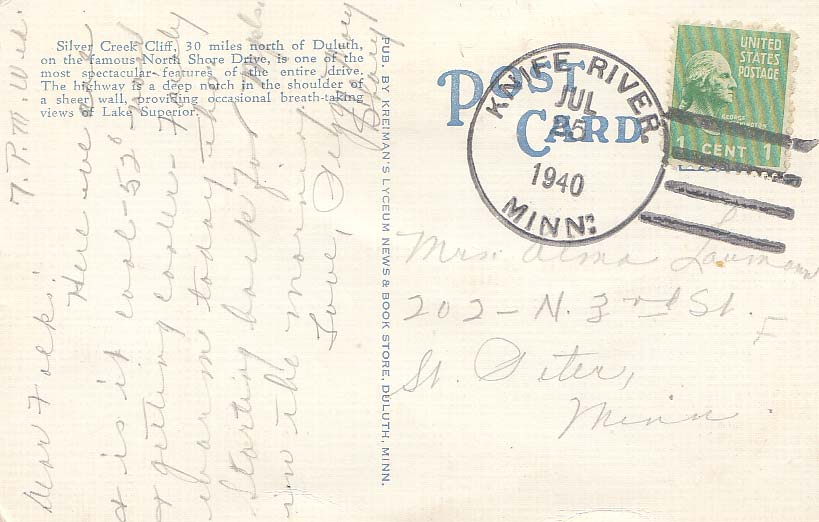 Silver Creek Cliff, 30 miles north of Duluth,
on the famous North Shore Drive, is one of the
most spectacular features of the entire drive.
The highway is a deep notch in the shoulder of
a sheer wall, providing occasional breath-taking
views of Lake Superior.
7. P.M. Wed.
Dear Folks:
Here we are
& is it cool - 52° - and
& getting cooler -
warm today
Starting back for
in the morning
Love,
PUB. BY KREIMAN'S LYCEUM NEWS & BOOK STORE, DULUTH, MINN.
POST
CARD
KNIFE RIVER.
JUL
25
1940
MINN.
UNITED
STATES
POSTAGE
GEORGE
WASHINGTON
1 CENT 1
Mrs. Alma Laumann
202 - N. 3rd St.
St. Peter,
Minn